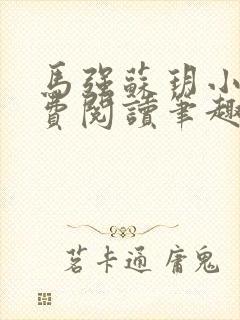 馬強蘇玥小
費閱讀筆趣
茗卡通 庸鬼